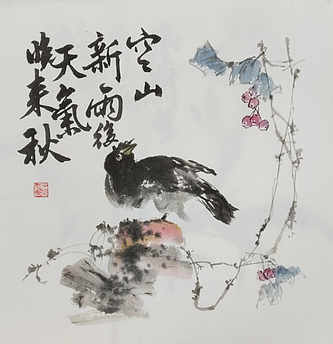 空山
新雨後
天氣
晚来秋